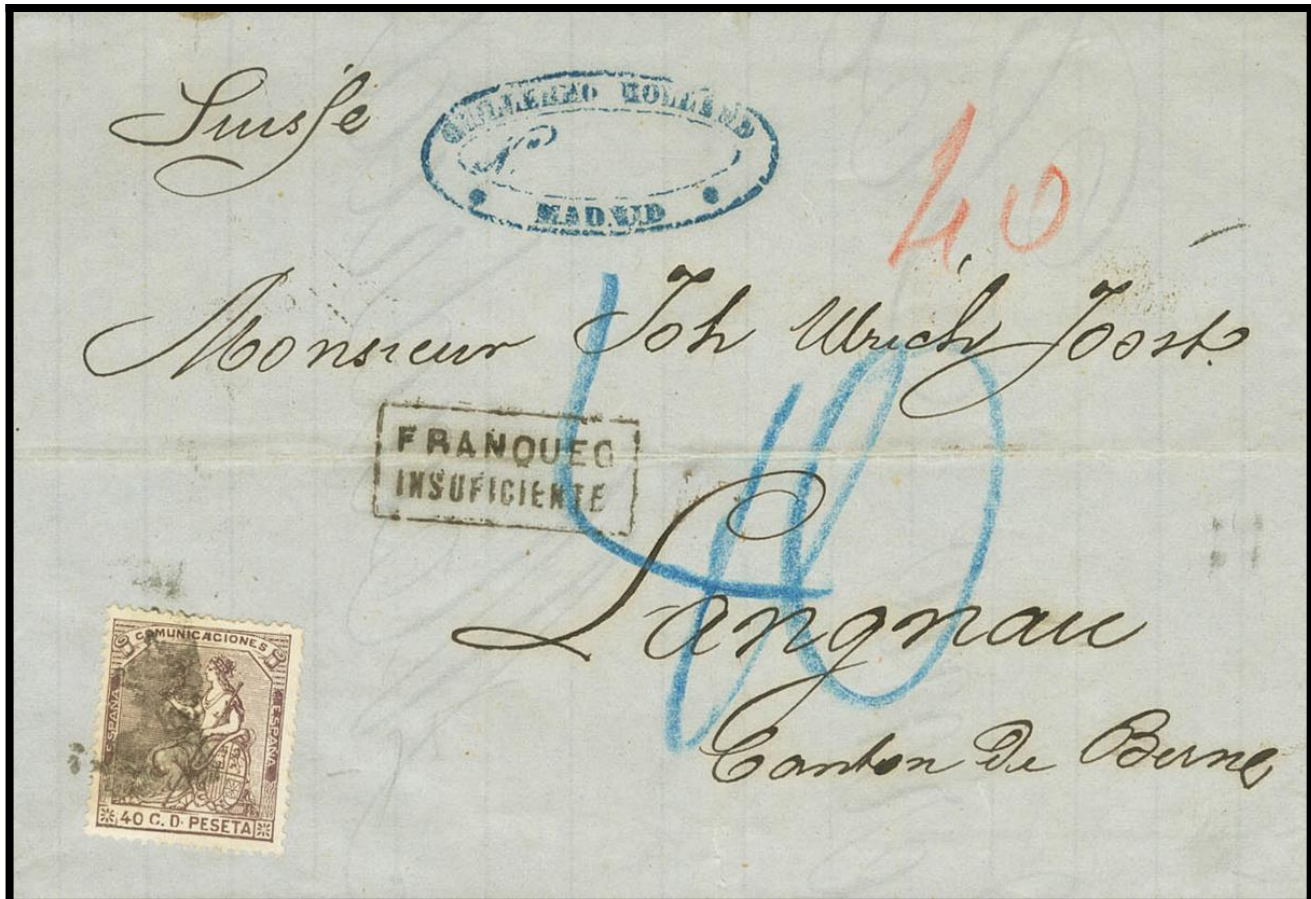 Suisse
GUILLERMO
No
MADRID
40
Monsieur Joh Ulrich Joost
FRANQUEO
INSUFICIENTE
40
Langnau
Canton De Berne
COMUNICACIONES
ESPAÑA
ESPAÑA
40 C. D. PESETA